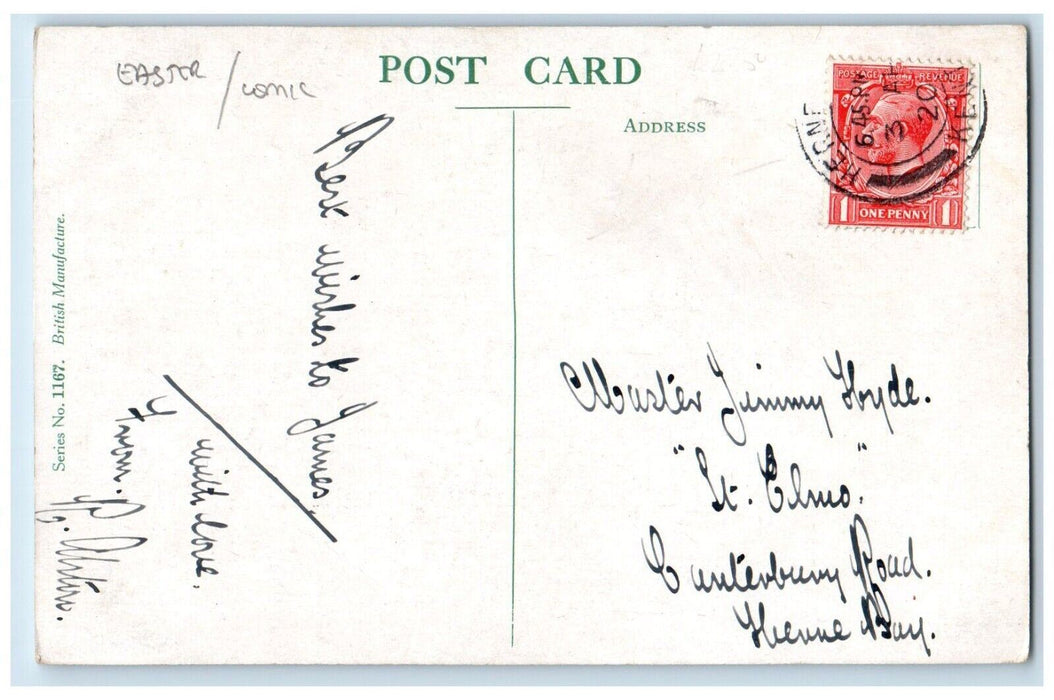 EASTER / COMIC
POST CARD
ADDRESS
POSTAGE REVENUE
ONE PENNY
1 1
HERNE
6.45.PM
3 AP
20
KENT
Best wishes to James
with love.
From.
Series No. 1167. British Manufacture.
Master Jimmy Hyde.
"St. Elmo."
Canterbury Road.
Herne Bay.